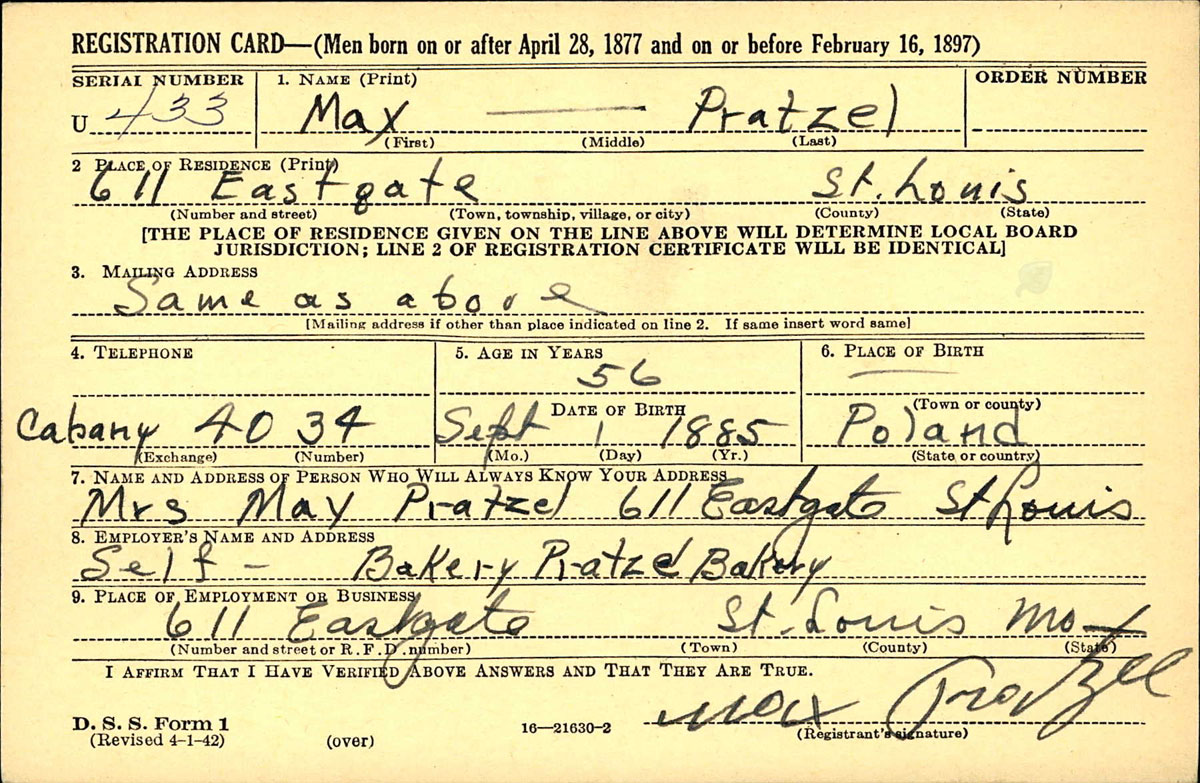 REGISTRATION CARD—(Men born on or after April 28, 1877 and on or before February 16, 1897)
SERIAL NUMBER 1. NAME (Print) ORDER NUMBER
U 433 Max — Pratzel
(First) (Middle) (Last)
2 PLACE OF RESIDENCE (Print)
611 Eastgate St. Louis
(Number and street) (Town, township, village, or city) (County) (State)
[THE PLACE OF RESIDENCE GIVEN ON THE LINE ABOVE WILL DETERMINE LOCAL BOARD
JURISDICTION; LINE 2 OF REGISTRATION CERTIFICATE WILL BE IDENTICAL]
3. MAILING ADDRESS
Same as above
[Mailing address if other than place indicated on line 2. If same insert word same]
4. TELEPHONE 5. AGE IN YEARS 6. PLACE OF BIRTH
56
DATE OF BIRTH (Town or county)
Cabany 40 34 Sept 1 1885 Poland
(Exchange) (Number) (Mo.) (Day) (Yr.) (State or country)
7. NAME AND ADDRESS OF PERSON WHO WILL ALWAYS KNOW YOUR ADDRESS
Mrs May Pratzel 611 Eastgate St Louis
8. EMPLOYER'S NAME AND ADDRESS
Self – Bakery Pratzel Bakery
9. PLACE OF EMPLOYMENT OR BUSINESS
611 Eastgate St. Louis Mo
(Number and street or R. F. D. number) (Town) (County) (State)
I AFFIRM THAT I HAVE VERIFIED ABOVE ANSWERS AND THAT THEY ARE TRUE.
Max Pratzel
D. S. S. Form 1 16—21630-2 (Registrant's signature)
(Revised 4-1-42) (over)